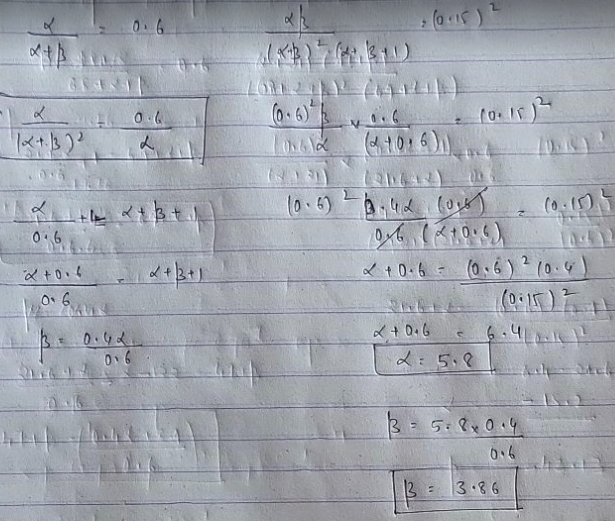 α/(α+β) = 0.6
α/(α+β)² = 0.6/α
α/0.6 + 1 = α+β+1
(α+0.6)/0.6 = α+β+1
β = 0.4α/0.6
αβ/((α+β)²(α+β+1)) = (0.15)²
(0.6)²β/α × 0.6/(α+0.6) = (0.15)²
(0.6)² 0.4α (0.6)/(0.6 (α+0.6)) = (0.15)²
α+0.6 = (0.6)²(0.4)/(0.15)²
α+0.6 = 6.4
α = 5.8
β = 5.8×0.4/0.6
β = 3.86